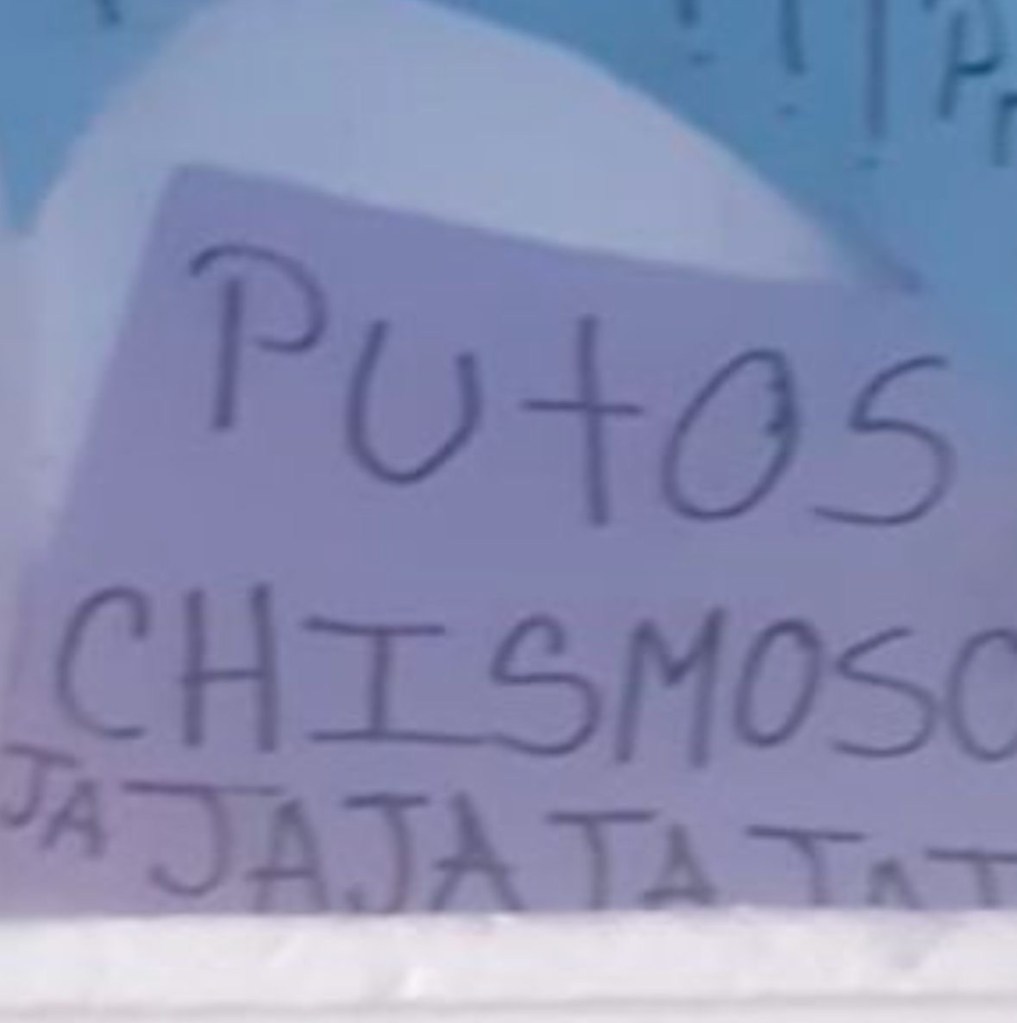 PUtOS
CHISMOSO
JA JAJAJAJAJAJ